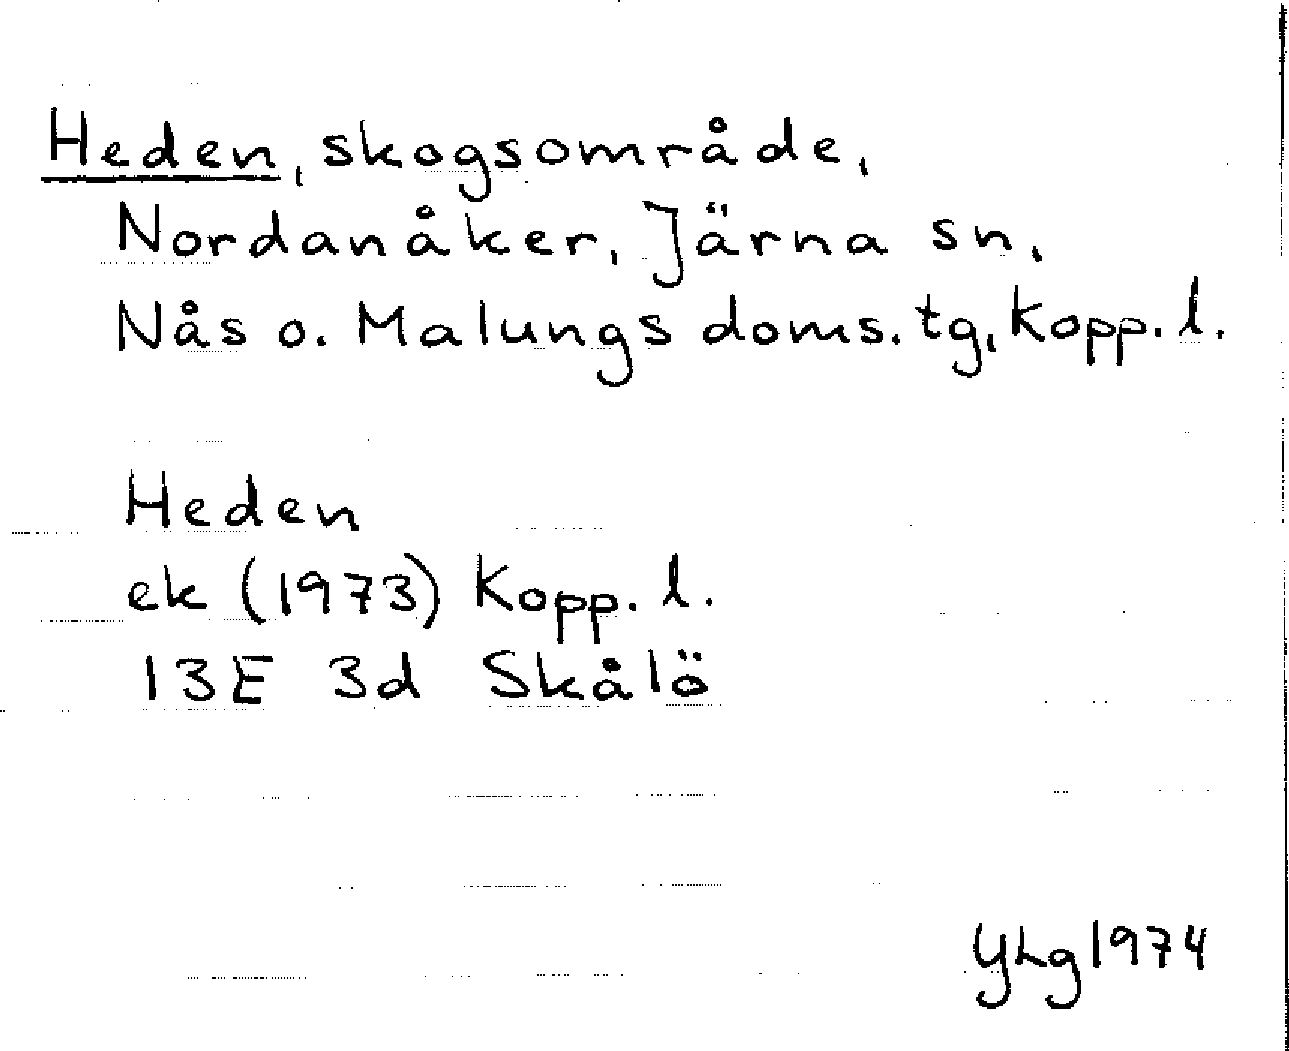 Heden, skogsområde,
Nordanåker, Järna sn,
Nås o. Malungs doms. tg, Kopp. l.
Heden
ek (1973) Kopp. l.
13E 3d Skålö
YLg 1974